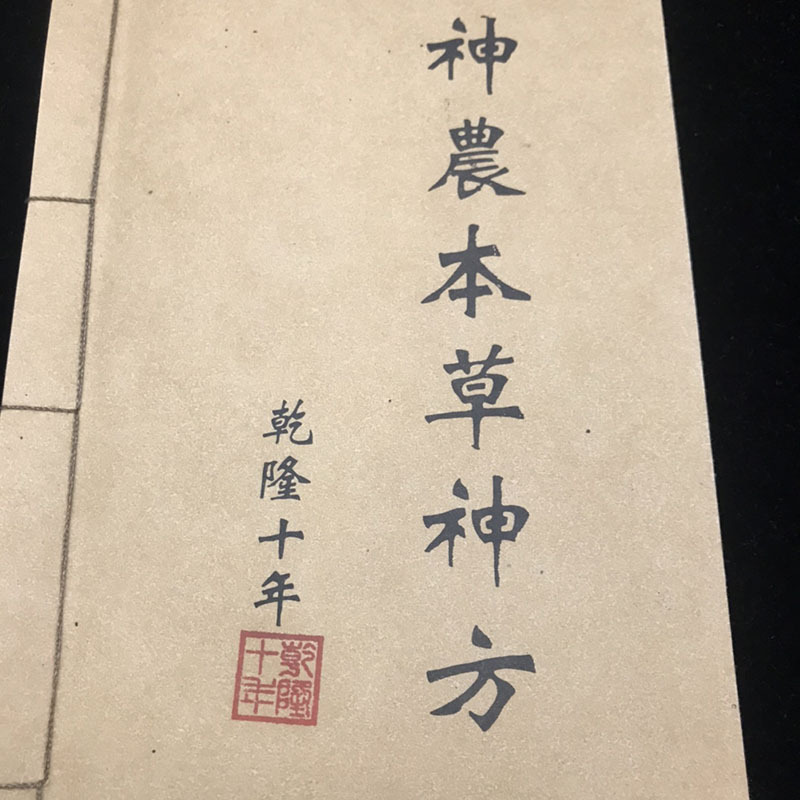 神農本草神方
乾隆十年
乾隆
十年